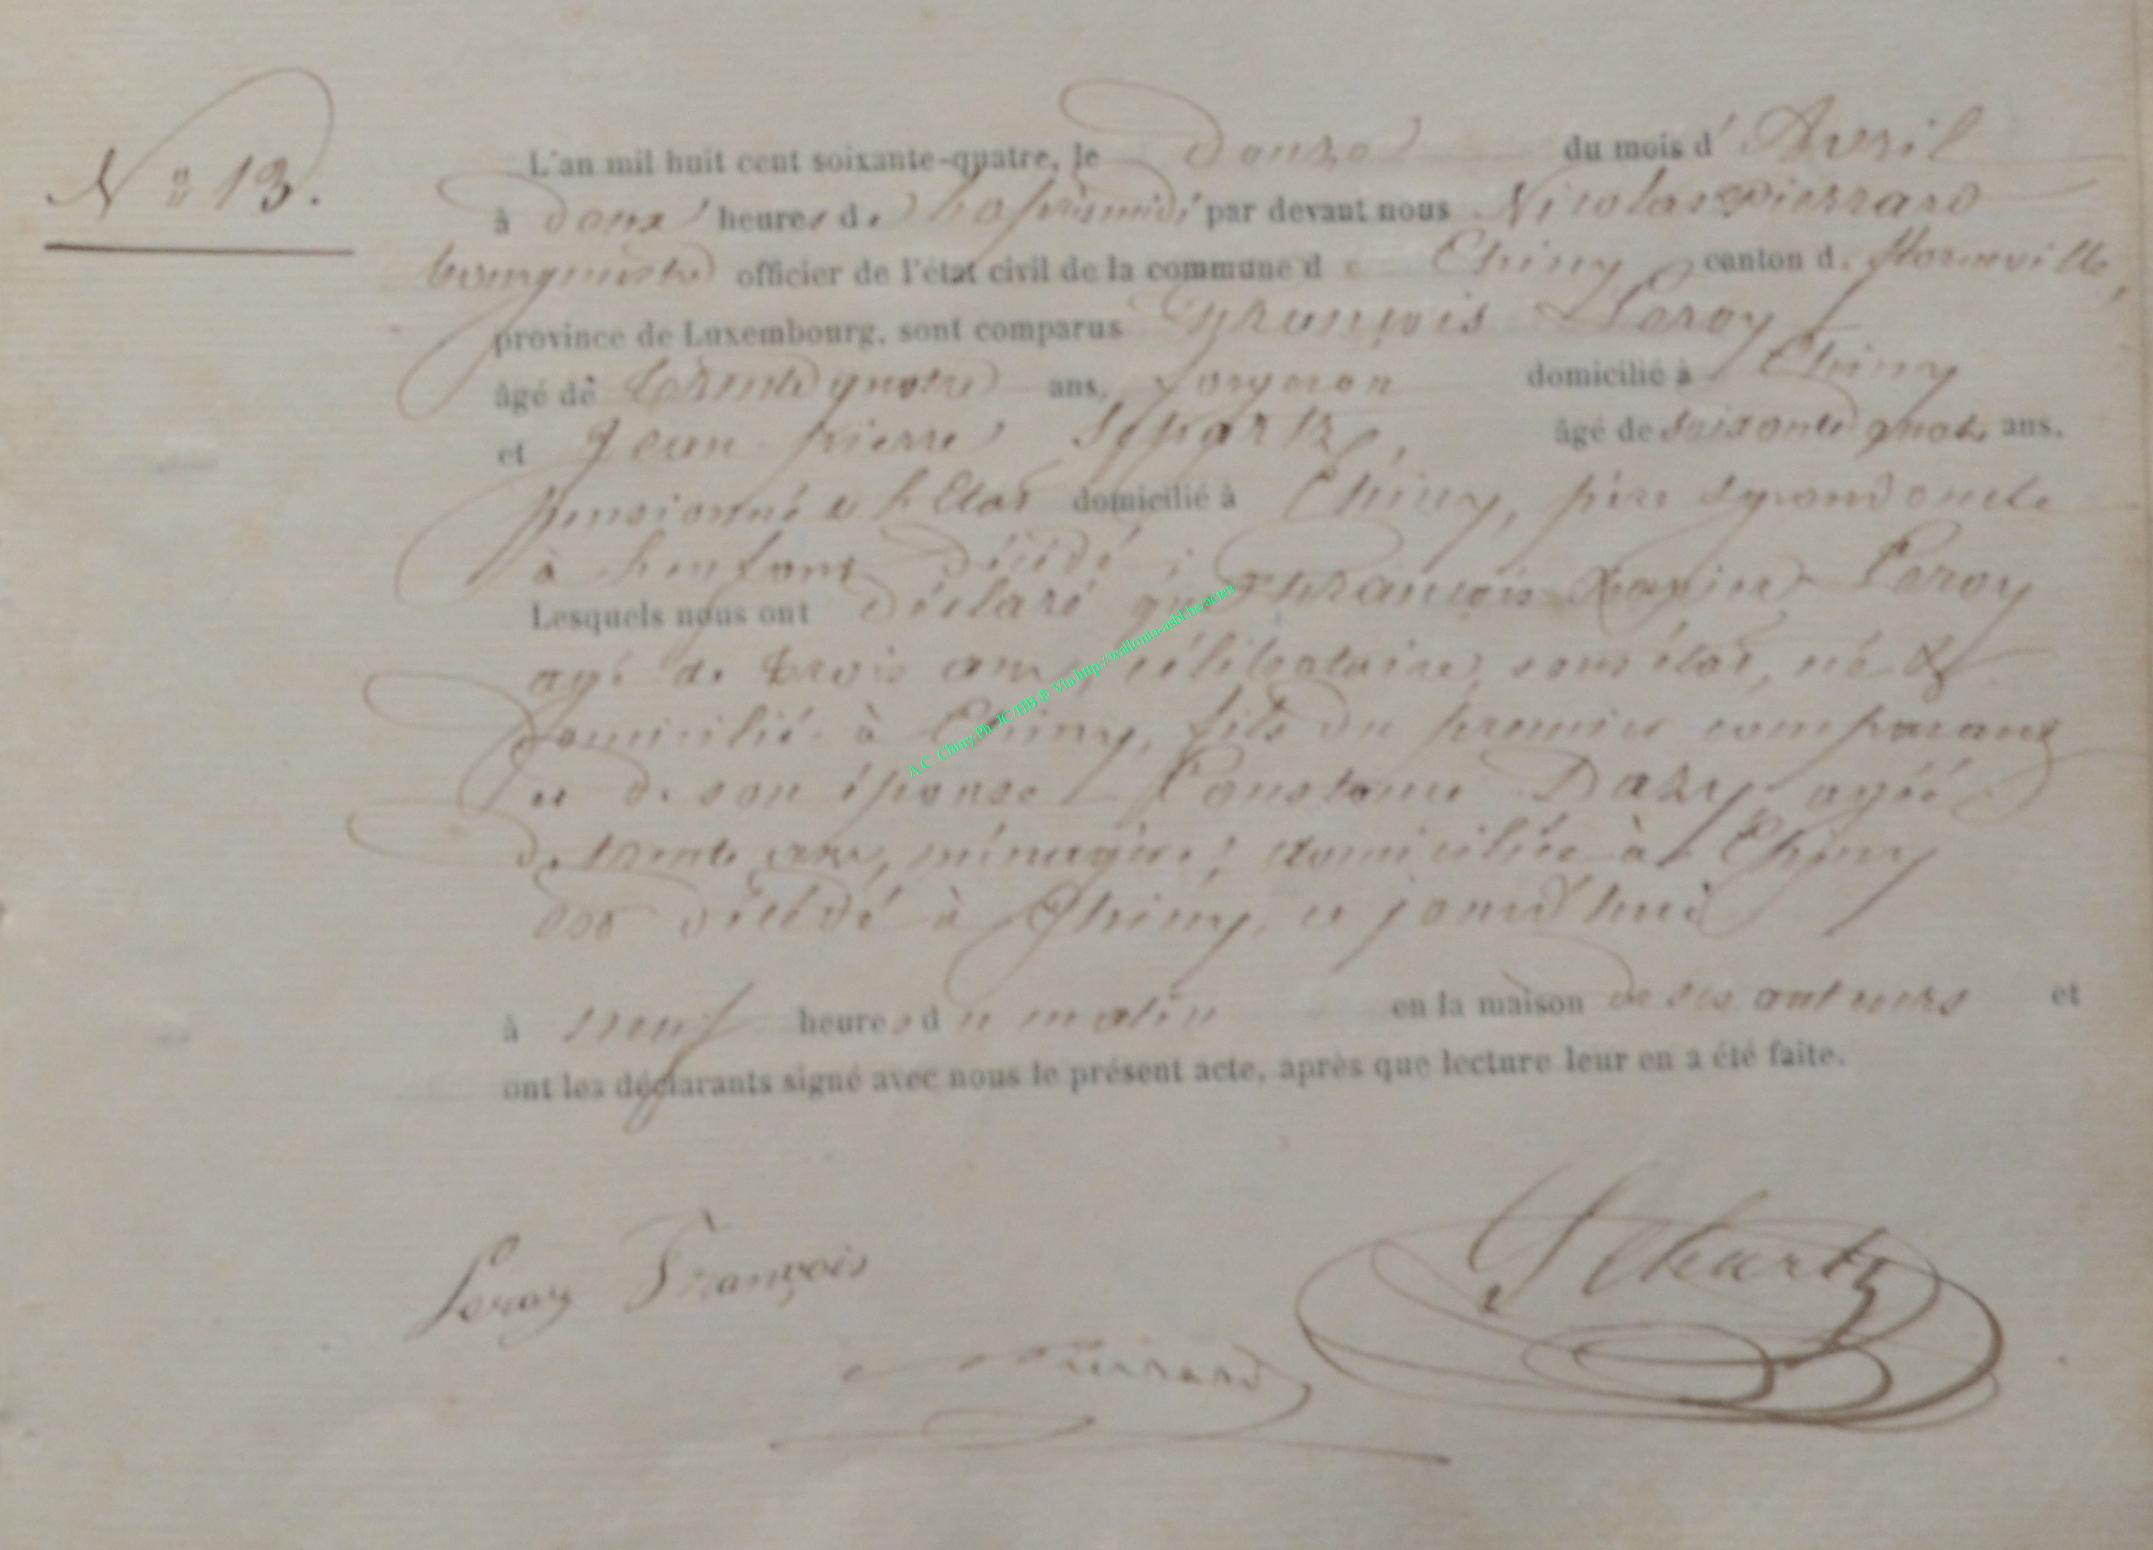 N° 13.
L'an mil huit cent soixante-quatre, le Douze du mois d' Avril
à deux heures de l'aprèsmidi par devant nous Nicolas Pierrard
bourgmestre officier de l'état civil de la commune de Chiny canton de Florenville,
province de Luxembourg, sont comparus François Leroy
âgé de trente quatre ans, forgeron domicilié à Chiny
et Jean pierre Schartz, âgé de soixante quatre ans,
pensionné de l'Etat domicilié à Chiny, père & grand oncle
à l'enfant décédé ;
Lesquels nous ont déclaré que François Xavier Leroy
agé de trois ans, célibataire, sans état, né &
domicilié à Chiny, fils du premier comparant
et de son épouse Constance Dazy agéé
de trente ans, ménagère, domiciliée à Chiny
est décédé à Chiny, ce jourd'hui
à neuf heures du matin en la maison de ses auteurs et
ont les déclarants signé avec nous le présent acte, après que lecture leur en a été faite.
Leroy François
Schartz
Pierrard
A.C. Chiny Ph. JC/HB @ Via http://wallonia-asbl.be/actes